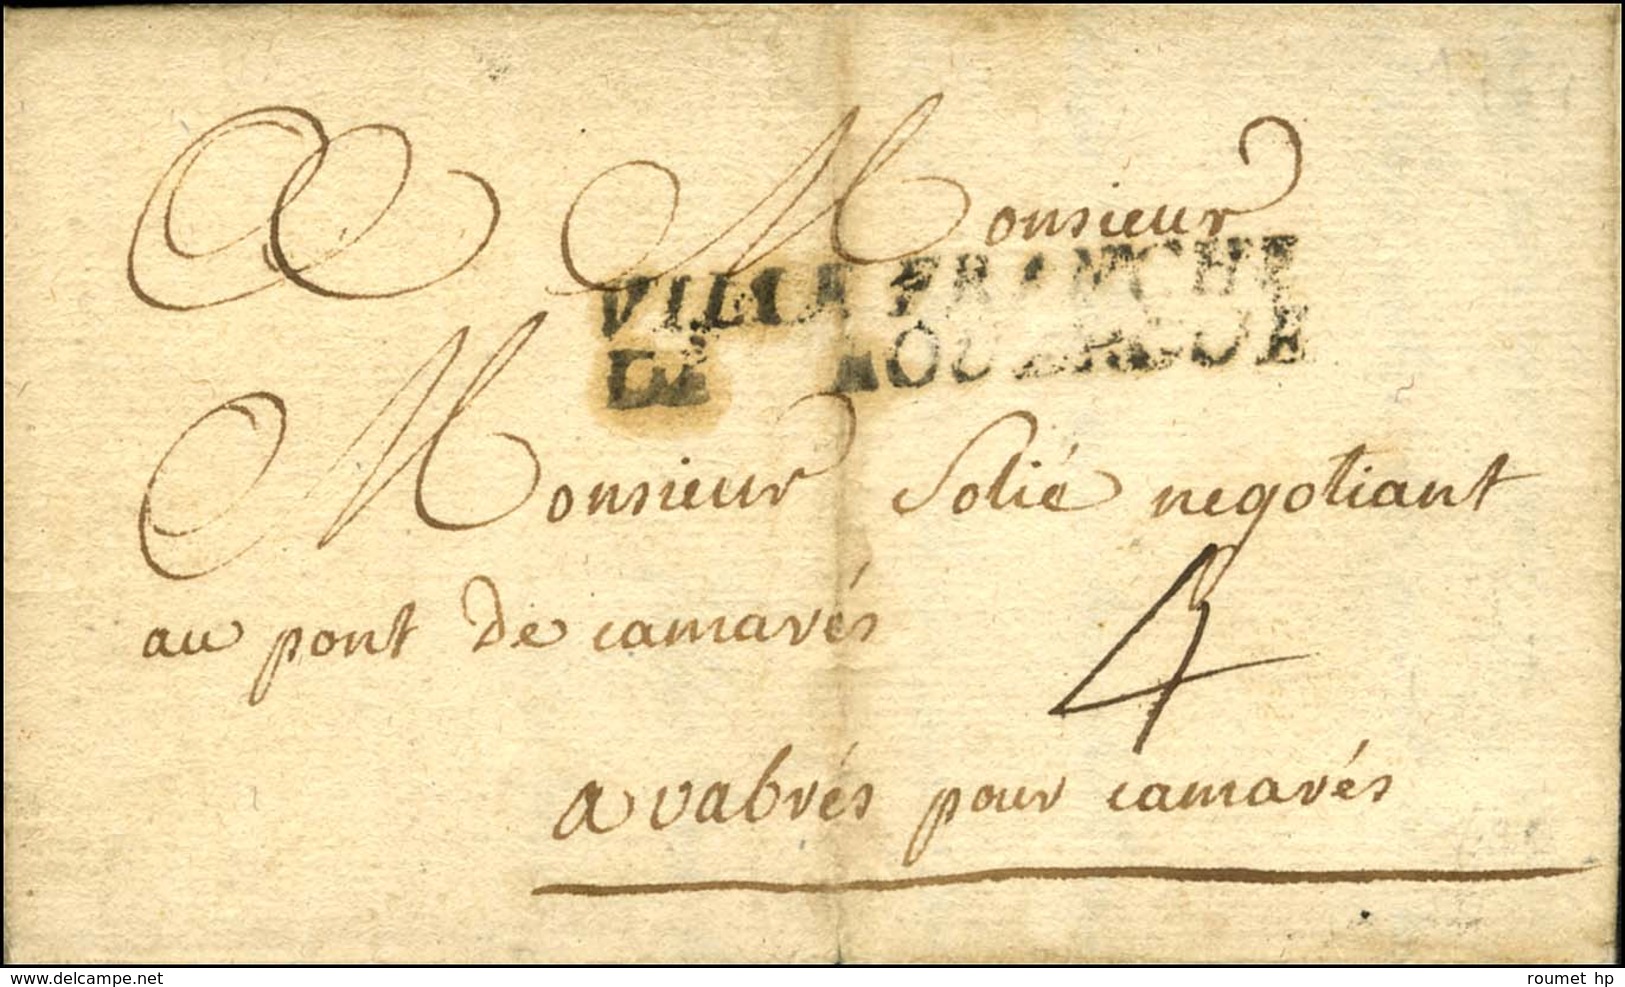 Monsieur
VILLE FRANCHE
DE ROUERGUE
Monsieur Solié negotiant
au pont de camarés
4
a vabrés pour camarés
www.delcampe.net
roumet hp